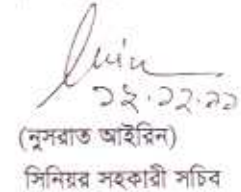 ১২.১২.২২
(নুসরাত আইরিন)
সিনিয়র সহকারী সচিব